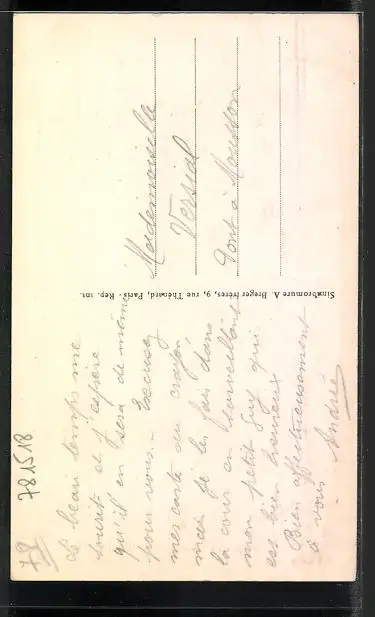 78
781518
Le beau temps me
sourit et j'espère
qu'il en sera de même
pour vous. - Excusez
mes carte au crayon
mais je les fais dans
la cour en surveillant
mon petit Guy qui
est bien heureux
Bien affectueusement
à vous. Andrée
Sinsbromure A. Breger frères, 9, rue Thénard, Paris - Rep. int.
Mademoiselle
Versial
Pont à Mousson